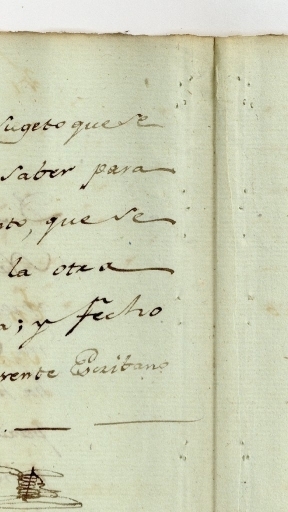 sugeto que se
saber para
to, que se
la otra
a; y fecho
rente Escribano